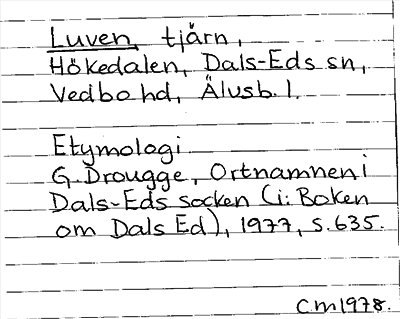 Luven, tjärn,
Hökedalen, Dals-Eds sn,
Vedbo hd, Älvsb. l.
Etymologi
G. Drougge, Ortnamnen i
Dals-Eds socken (i: Boken
om Dals Ed), 1977, s. 635.
CM 1978.